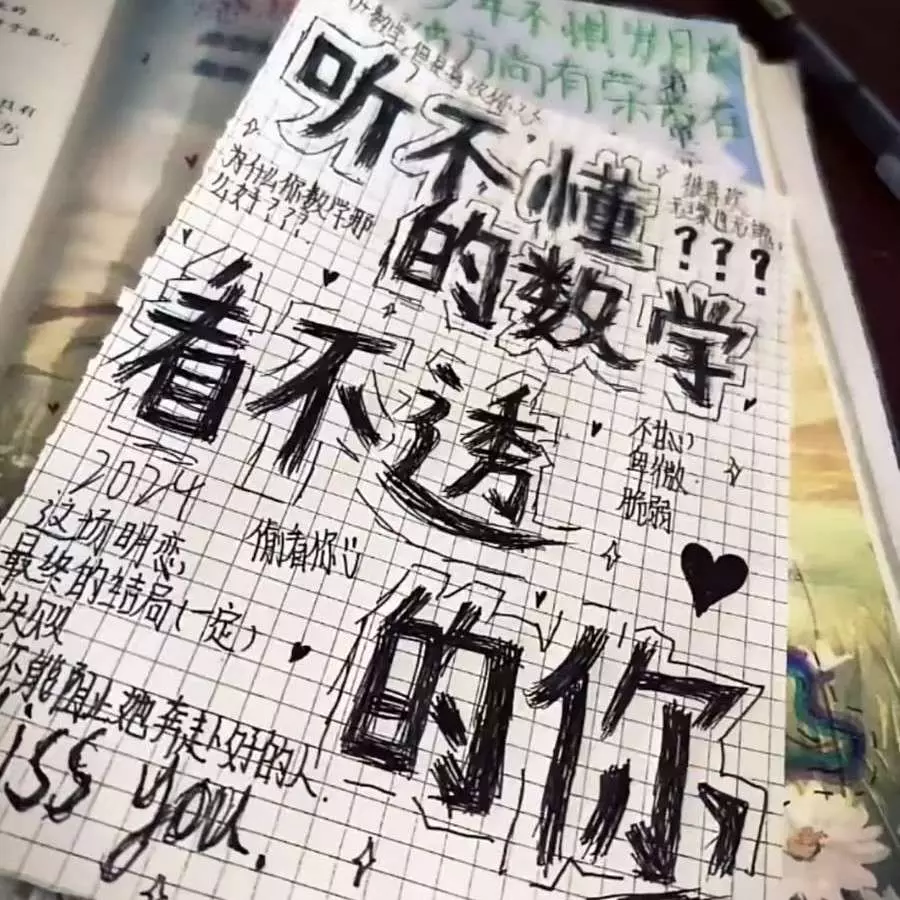 年不惧岁月长
方尚有荣
听不懂
的数学
???
为什么你数学那
么好???
看不透
不甘心
卑微
脆弱
2024
这场明恋
最终的结局(一定)
失败
偷看你
的你
不能配上她奔赴好的人
iss you.